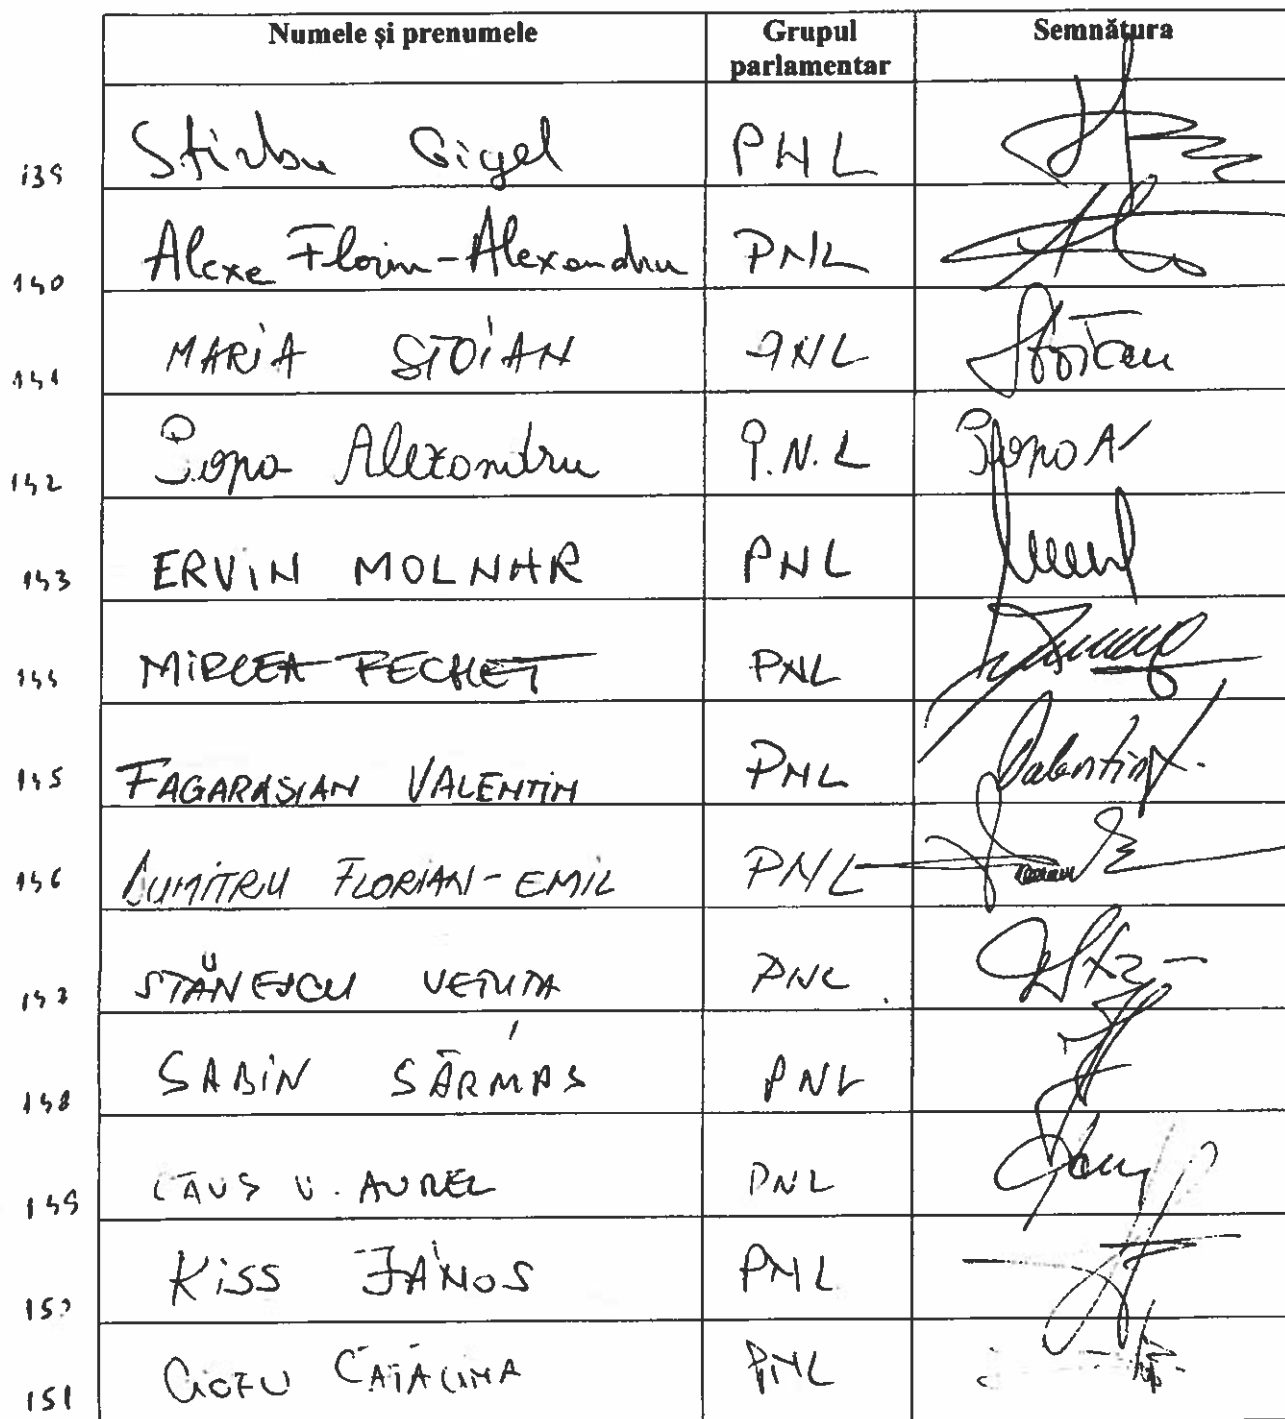 Numele și prenumele Grupul parlamentar Semnătura
139 Stirbu Gigel PNL
140 Alexe Florin-Alexandru PNL
141 MARIA STOIAN PNL Stoian
142 Popa Alexandru P.N.L Popa A
143 ERVIN MOLNAR PNL
144 MIRCEA FECHET PNL
145 FAGARASIAN VALENTIN PNL Valentin
146 DUMITRU FLORIAN-EMIL PNL
147 STĂNESCU VETUTA PNL
148 SABIN SĂRMAS PNL
149 CĂUS V. AUREL PNL
150 KISS JÁNOS PNL
151 CIOFU CĂTĂLINA PNL